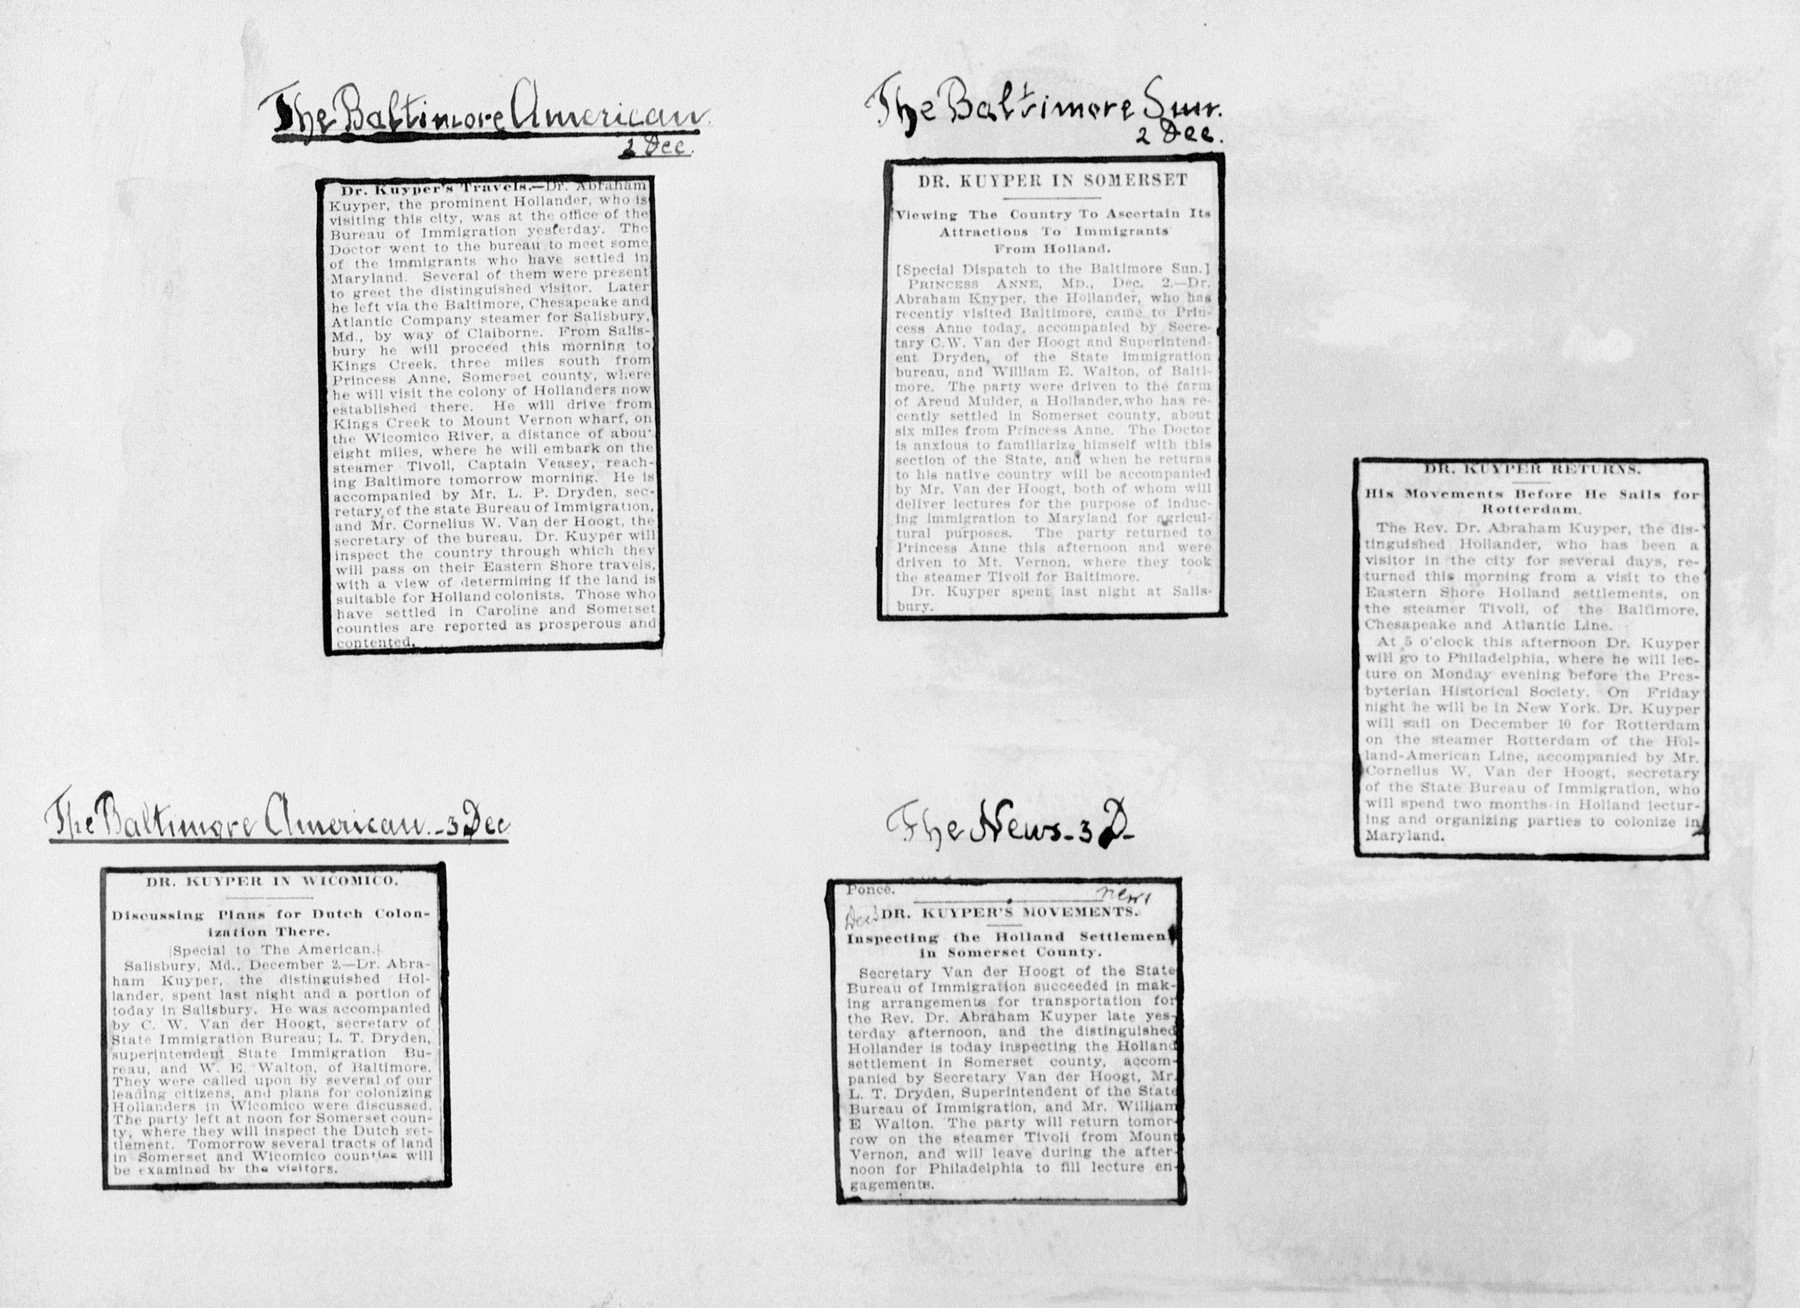 The Baltimore American.
2 Dec.
Dr. Kuyper's Travels.—Dr. Abraham
Kuyper, the prominent Hollander, who is
visiting this city, was at the office of the
Bureau of Immigration yesterday. The
Doctor went to the bureau to meet some
of the immigrants who have settled in
Maryland. Several of them were present
to greet the distinguished visitor. Later
he left via the Baltimore, Chesapeake and
Atlantic Company steamer for Salisbury,
Md., by way of Claiborne. From Salis-
bury he will proceed this morning to
Kings Creek, three miles south from
Princess Anne, Somerset county, where
he will visit the colony of Hollanders now
established there. He will drive from
Kings Creek to Mount Vernon wharf, on
the Wicomico River, a distance of about
eight miles, where he will embark on the
steamer Tivoli, Captain Veasey, reach-
ing Baltimore tomorrow morning. He is
accompanied by Mr. L. P. Dryden, sec-
retary of the state Bureau of Immigration,
and Mr. Cornelius W. Van der Hoogt, the
secretary of the bureau. Dr. Kuyper will
inspect the country through which they
will pass on their Eastern Shore travels,
with a view of determining if the land is
suitable for Holland colonists. Those who
have settled in Caroline and Somerset
counties are reported as prosperous and
contented.
The Baltimore Sun.
2 Dec.
DR. KUYPER IN SOMERSET
Viewing The Country To Ascertain Its
Attractions To Immigrants
From Holland.
[Special Dispatch to the Baltimore Sun.]
PRINCESS ANNE, MD., Dec. 2.—Dr.
Abraham Kuyper, the Hollander, who has
recently visited Baltimore, came to Prin-
cess Anne today, accompanied by Secre-
tary C.W. Van der Hoogt and Superintend-
ent Dryden, of the State immigration
bureau, and William E. Walton, of Balti-
more. The party were driven to the farm
of Arend Mulder, a Hollander, who has re-
cently settled in Somerset county, about
six miles from Princess Anne. The Doctor
is anxious to familiarize himself with this
section of the State, and when he returns
to his native country will be accompanied
by Mr. Van der Hoogt, both of whom will
deliver lectures for the purpose of induc-
ing immigration to Maryland for agricul-
tural purposes. The party returned to
Princess Anne this afternoon and were
driven to Mt. Vernon, where they took
the steamer Tivoli for Baltimore.
Dr. Kuyper spent last night at Salis-
bury.
DR. KUYPER RETURNS.
His Movements Before He Sails for
Rotterdam.
The Rev. Dr. Abraham Kuyper, the dis-
tinguished Hollander, who has been a
visitor in the city for several days, re-
turned this morning from a visit to the
Eastern Shore Holland settlements, on
the steamer Tivoli, of the Baltimore,
Chesapeake and Atlantic Line.
At 5 o'clock this afternoon Dr. Kuyper
will go to Philadelphia, where he will lec-
ture on Monday evening before the Pres-
byterian Historical Society. On Friday
night he will be in New York. Dr. Kuyper
will sail on December 10 for Rotterdam
on the steamer Rotterdam of the Hol-
land-American Line, accompanied by Mr.
Cornelius W. Van der Hoogt, secretary
of the State Bureau of Immigration, who
will spend two months in Holland lectur-
ing and organizing parties to colonize in
Maryland.
The Baltimore American. - 3 Dec
DR. KUYPER IN WICOMICO.
Discussing Plans for Dutch Colon-
ization There.
[Special to The American.]
Salisbury, Md., December 2.—Dr. Abra-
ham Kuyper, the distinguished Hol-
lander, spent last night and a portion of
today in Salisbury. He was accompanied
by C. W. Van der Hoogt, secretary of
State Immigration Bureau; L. T. Dryden,
superintendent State Immigration Bu-
reau, and W. E. Walton, of Baltimore.
They were called upon by several of our
leading citizens, and plans for colonizing
Hollanders in Wicomico were discussed.
The party left at noon for Somerset coun-
ty, where they will inspect the Dutch set-
tlement. Tomorrow several tracts of land
in Somerset and Wicomico counties will
be examined by the visitors.
The News - 3 D -
Ponce.
news
Dec 3
DR. KUYPER'S MOVEMENTS.
Inspecting the Holland Settlement
in Somerset County.
Secretary Van der Hoogt of the State
Bureau of Immigration succeeded in mak-
ing arrangements for transportation for
the Rev. Dr. Abraham Kuyper late yes-
terday afternoon, and the distinguished
Hollander is today inspecting the Holland
settlement in Somerset county, accom-
panied by Secretary Van der Hoogt, Mr.
L. T. Dryden, Superintendent of the State
Bureau of Immigration, and Mr. William
E Walton. The party will return tomor-
row on the steamer Tivoli from Mount
Vernon, and will leave during the after-
noon for Philadelphia to fill lecture en-
gagements.